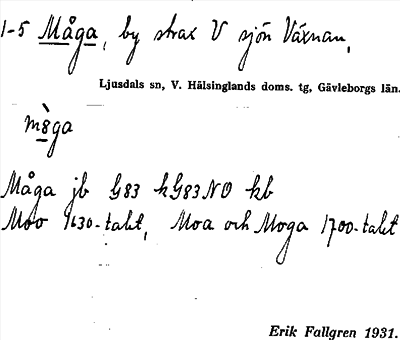 1-5 Måga, by strax V sjön Växnan,
Ljusdals sn, V. Hälsinglands doms. tg, Gävleborgs län.
Måga jb G83 kG83NO kb
Moo 1630-talet, Moa och Moga 1700-talet
Erik Fallgren 1931.